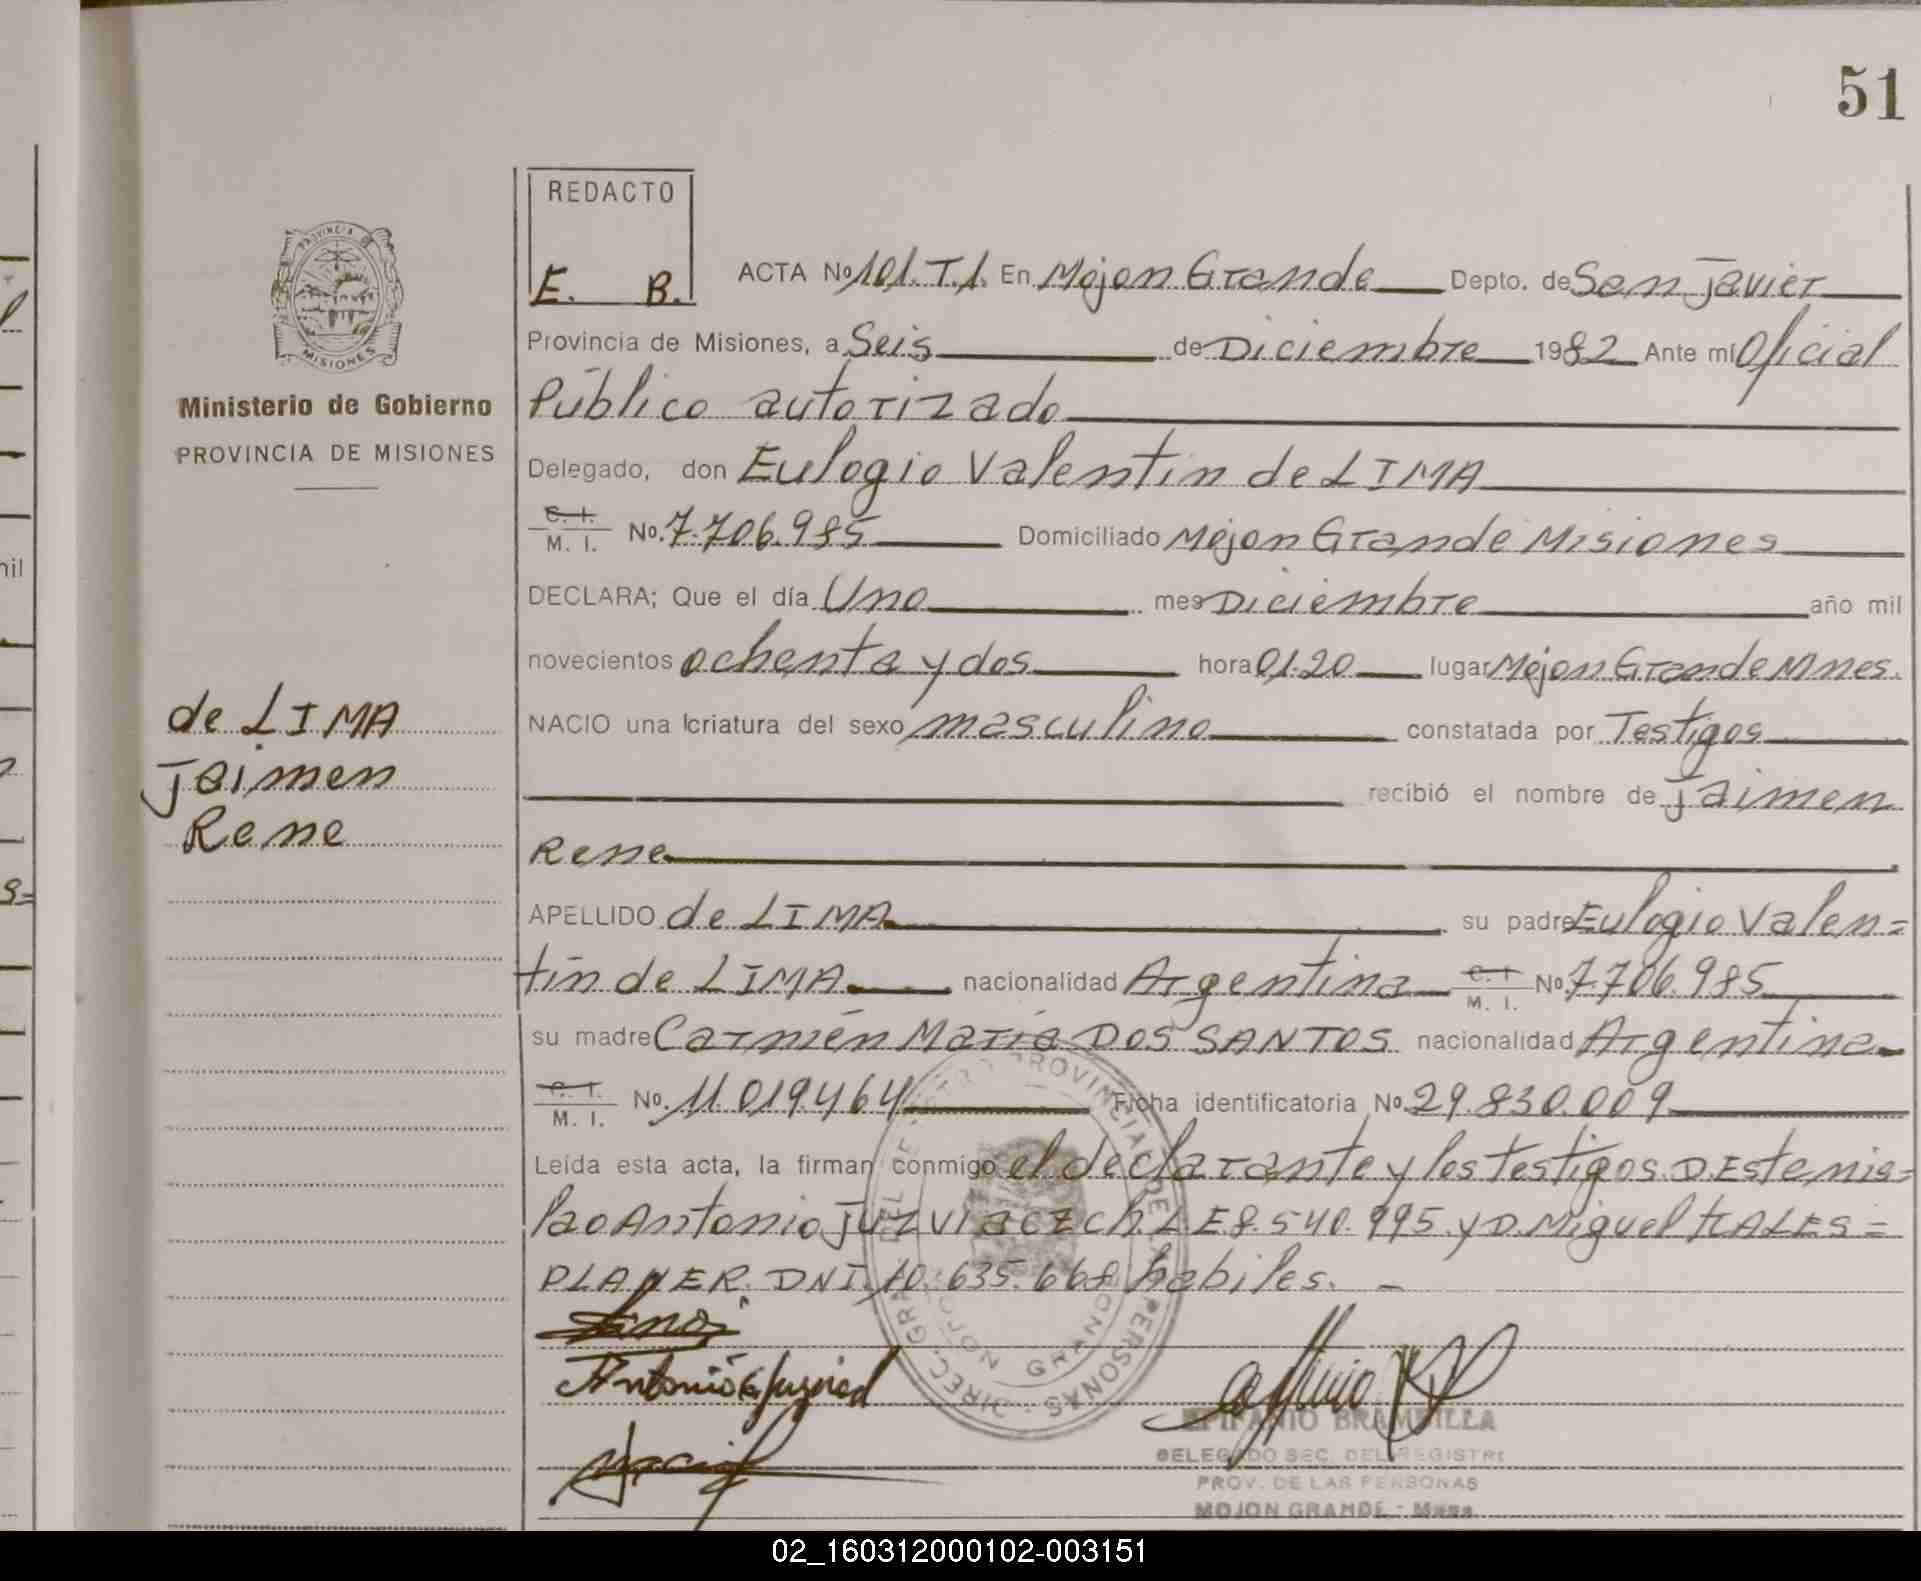 51
REDACTO
E. B.
PROVINCIA DE
MISIONES
Ministerio de Gobierno
PROVINCIA DE MISIONES
ACTA No 101. T.1. En Mojon Grande Depto. de San Javier
Provincia de Misiones, a Seis de Diciembre 1982 Ante mí Oficial
Público autorizado
Delegado, don Eulogio Valentin de LIMA
C. I. M. I. No. 7.706.985 Domiciliado Mojon Grande Misiones
DECLARA; Que el día Uno mes Diciembre año mil
novecientos ochenta y dos hora 01.20 lugar Mojon Grande Mnes.
NACIO una criatura del sexo masculino constatada por Testigos
recibió el nombre de Jaimen
Rene
de LIMA
Jaimen
Rene
APELLIDO de LIMA su padre Eulogio Valen=
tín de LIMA nacionalidad Argentina C. I. M. I. No 7.706.985
su madre Carmén María DOS SANTOS nacionalidad Argentina
C. I. M. I. No. 11.019.464 Ficha identificatoria No. 29.830.009
Leída esta acta, la firman conmigo el declarante y los testigos D. Estemis=
lao Antonio Juzviaczch. L E 8.540.995. y D. Miguel HALES=
PLANER. DNI. 10.635.668 habiles. —
EPIFANIO BRAMBILLA
DELEGADO SEC. DEL REGISTRO
PROV. DE LAS PERSONAS
MOJON GRANDE - Mnes
nil
02_160312000102-003151